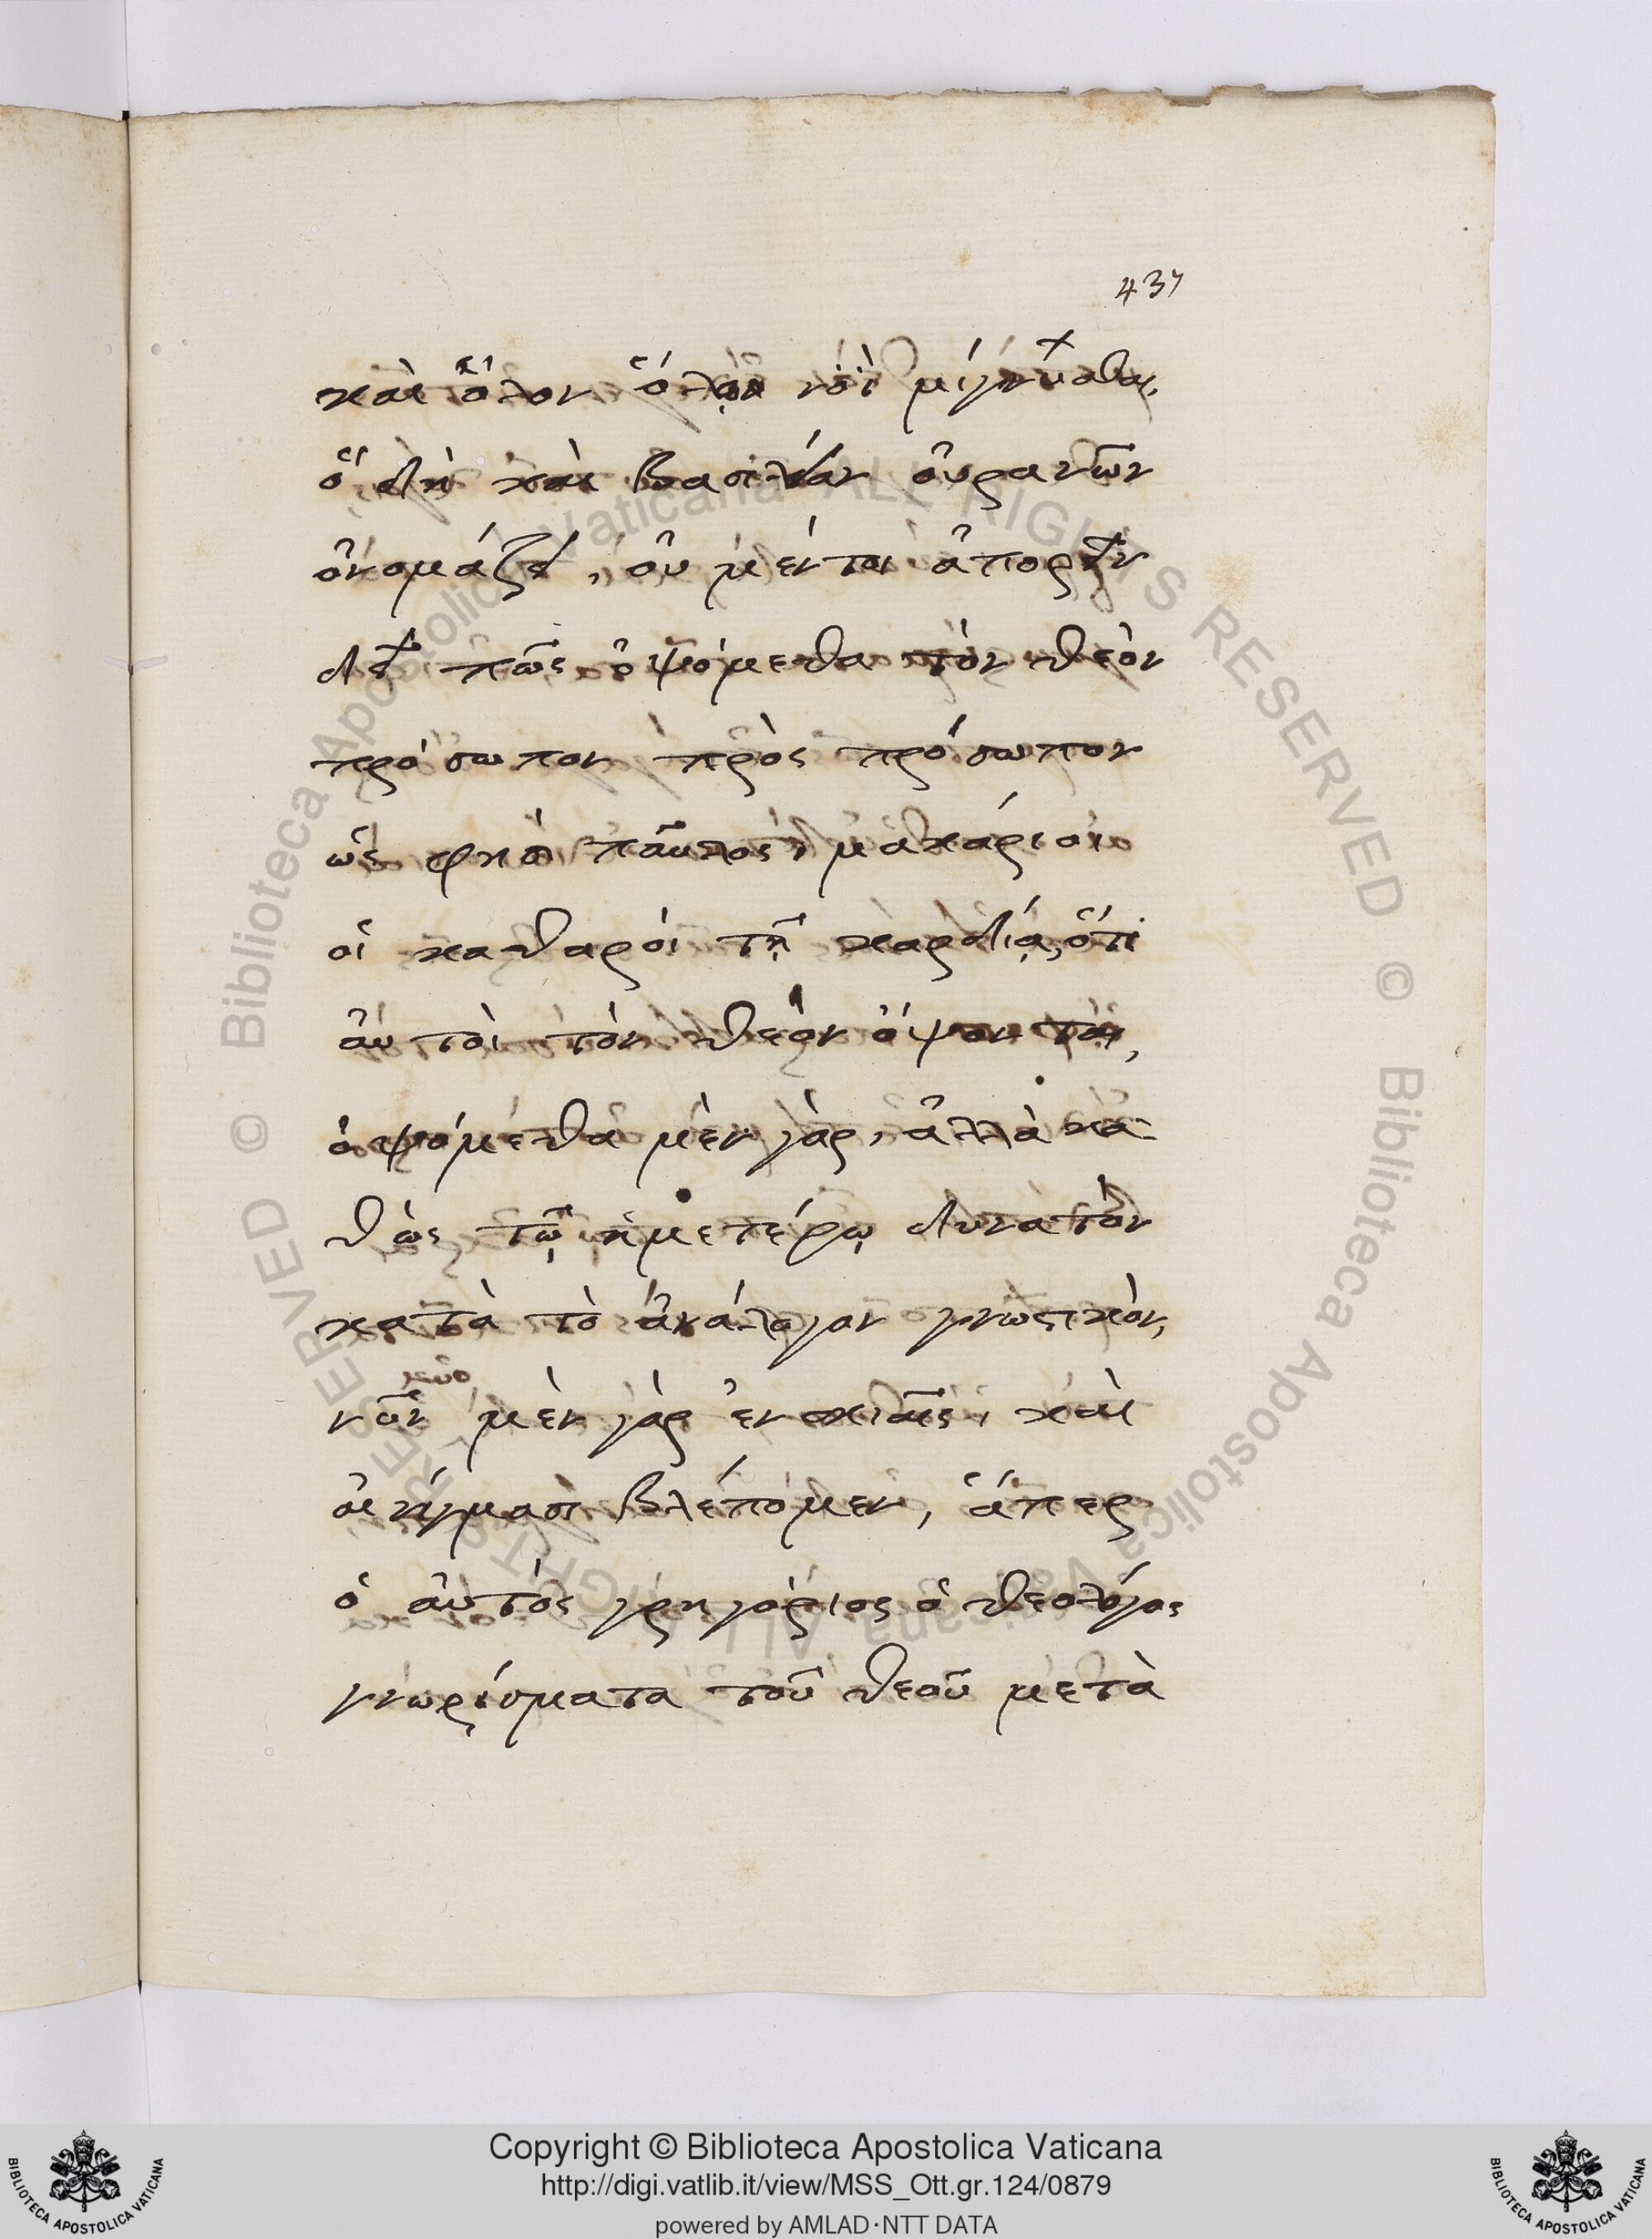 437
καὶ ὅλον ὅλῳ νοῒ μίγνυσθαι,
ὃ δὴ καὶ βασιλείαν οὐρανῶν
ὀνομάζει, οὐ μέντοι ἀπορεῖν
δεῖ πῶς ὀψόμεθα τὸν θεὸν
πρόσωπον πρὸς πρόσωπον
ὥς φησὶ παῦλος, μακάριοι
οἱ καθαροὶ τῇ καρδίᾳ, ὅτι
αὐτοὶ τὸν θεὸν ὄψονται,
ὀψόμεθα μὲν γὰρ, ἀλλὰ κα-
θὼς τῷ ἡμετέρῳ δυνατὸν
κατὰ τὸ ἀνάλογον γνωστικὸν,
νῦν μὲν γὰρ ἐν σκιαῖς, καὶ
αἰνίγμασι βλέπομεν, ἅπερ
ὁ αὐτὸς γρηγόριος ὁ θεολόγος
γνωρίσματα τοῦ θεοῦ μετὰ
© Biblioteca Apostolica Vaticana ALL RIGHTS RESERVED © Biblioteca Apostolica Vaticana ALL RIGHTS RESERVED
Copyright © Biblioteca Apostolica Vaticana
http://digi.vatlib.it/view/MSS_Ott.gr.124/0879
powered by AMLAD·NTT DATA
BIBLIOTECA APOSTOLICA VATICANA
BIBLIOTECA APOSTOLICA VATICANA